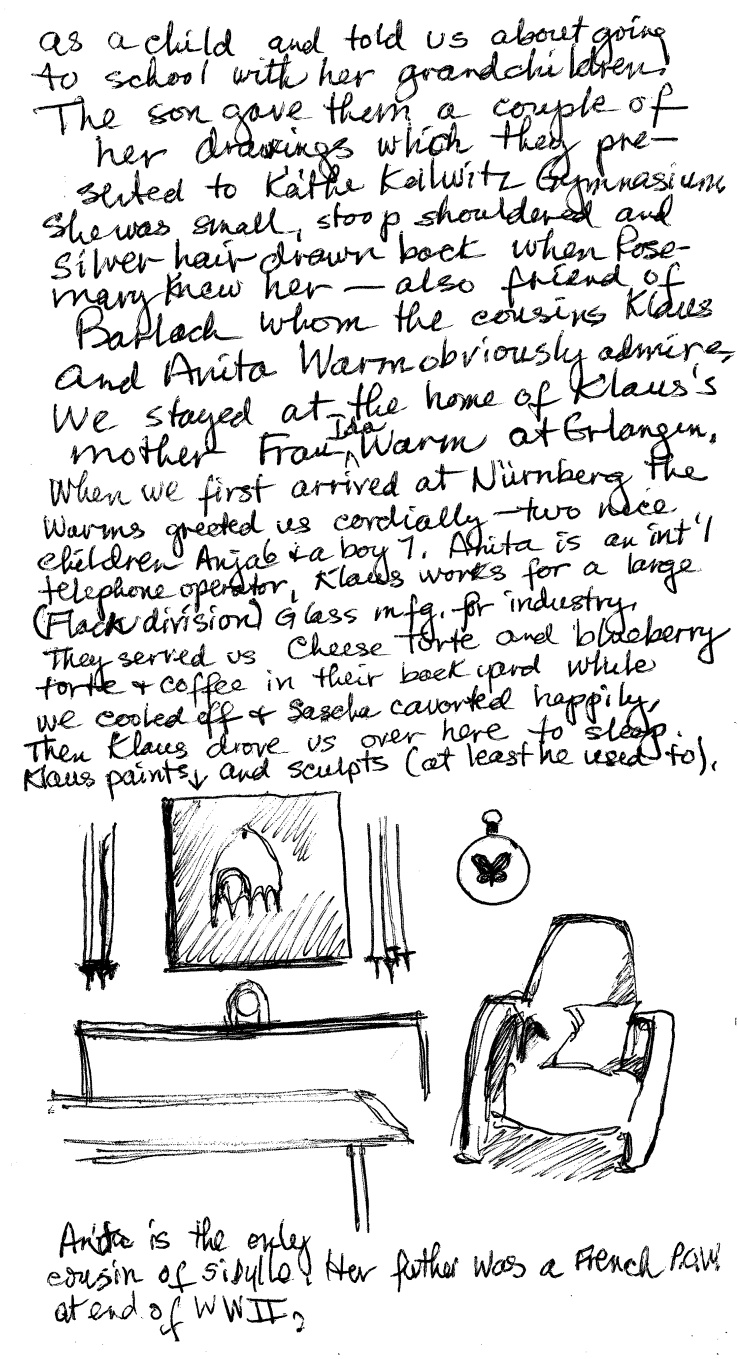 as a child and told us about going
to school with her grandchildren.
The son gave them a couple of
her drawings which they pre-
sented to Käthe Kollwitz Gymnasium.
She was small, stoop shouldered and
silver hair drawn back when Rose-
mary knew her — also friend of
Barlach whom the cousins Klaus
and Anita Warm obviously admire.
We stayed at the home of Klaus's
mother Frau Ida Warm at Erlangen.
When we first arrived at Nürnberg the
Warms greeted us cordially — two nice
children Anja 6 & a boy 7. Anita is an int'l
telephone operator, Klaus works for a large
(Flach division) Glass mfg. for industry.
They served us Cheese Torte and blueberry
torte & coffee in their back yard while
we cooled off & Sascha cavorted happily.
Then Klaus drove us over here to sleep.
Klaus paints↓ and sculpts (at least he used to).
Anita is the only
cousin of Sibylle. Her father was a French P.O.W.
at end of WWII.